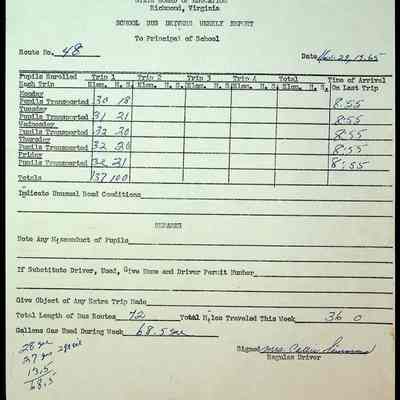 STATE BOARD OF EDUCATION
Richmond, Virginia
SCHOOL BUS DRIVERS WEEKLY REPORT
To Principal of School
Route No. 48
Date Nov. 29, 1965
Pupils Enrolled Trip 1 Trip 2 Trip 3 Trip 4 Total Time of Arrival
Each Trip Elem. H. S. Elem. H. S. Elem. H. S. Elem. H. S. Elem. H. S. On Last Trip
Monday
Pupils Transported 30 18 8:55
Tuesday
Pupils Transported 31 21 8:55
Wednesday
Pupils Transported 32 20 8:55
Thursday
Pupils Transported 32 20 8:55
Friday
Pupils Transported 32 21 8:55
Totals 157 100
Indicate Unusual Road Conditions
REMARKS
Note Any Misconduct of Pupils
If Substitute Driver, Used, Give Name and Driver Permit Number
Give Object of Any Extra Trip Made
Total Length of Bus Routes 72 Total Miles Traveled This Week 360
Gallons Gas Used During Week 68.5
Signed Mrs. Callie
Regular Driver
28
27
13.5
68.5